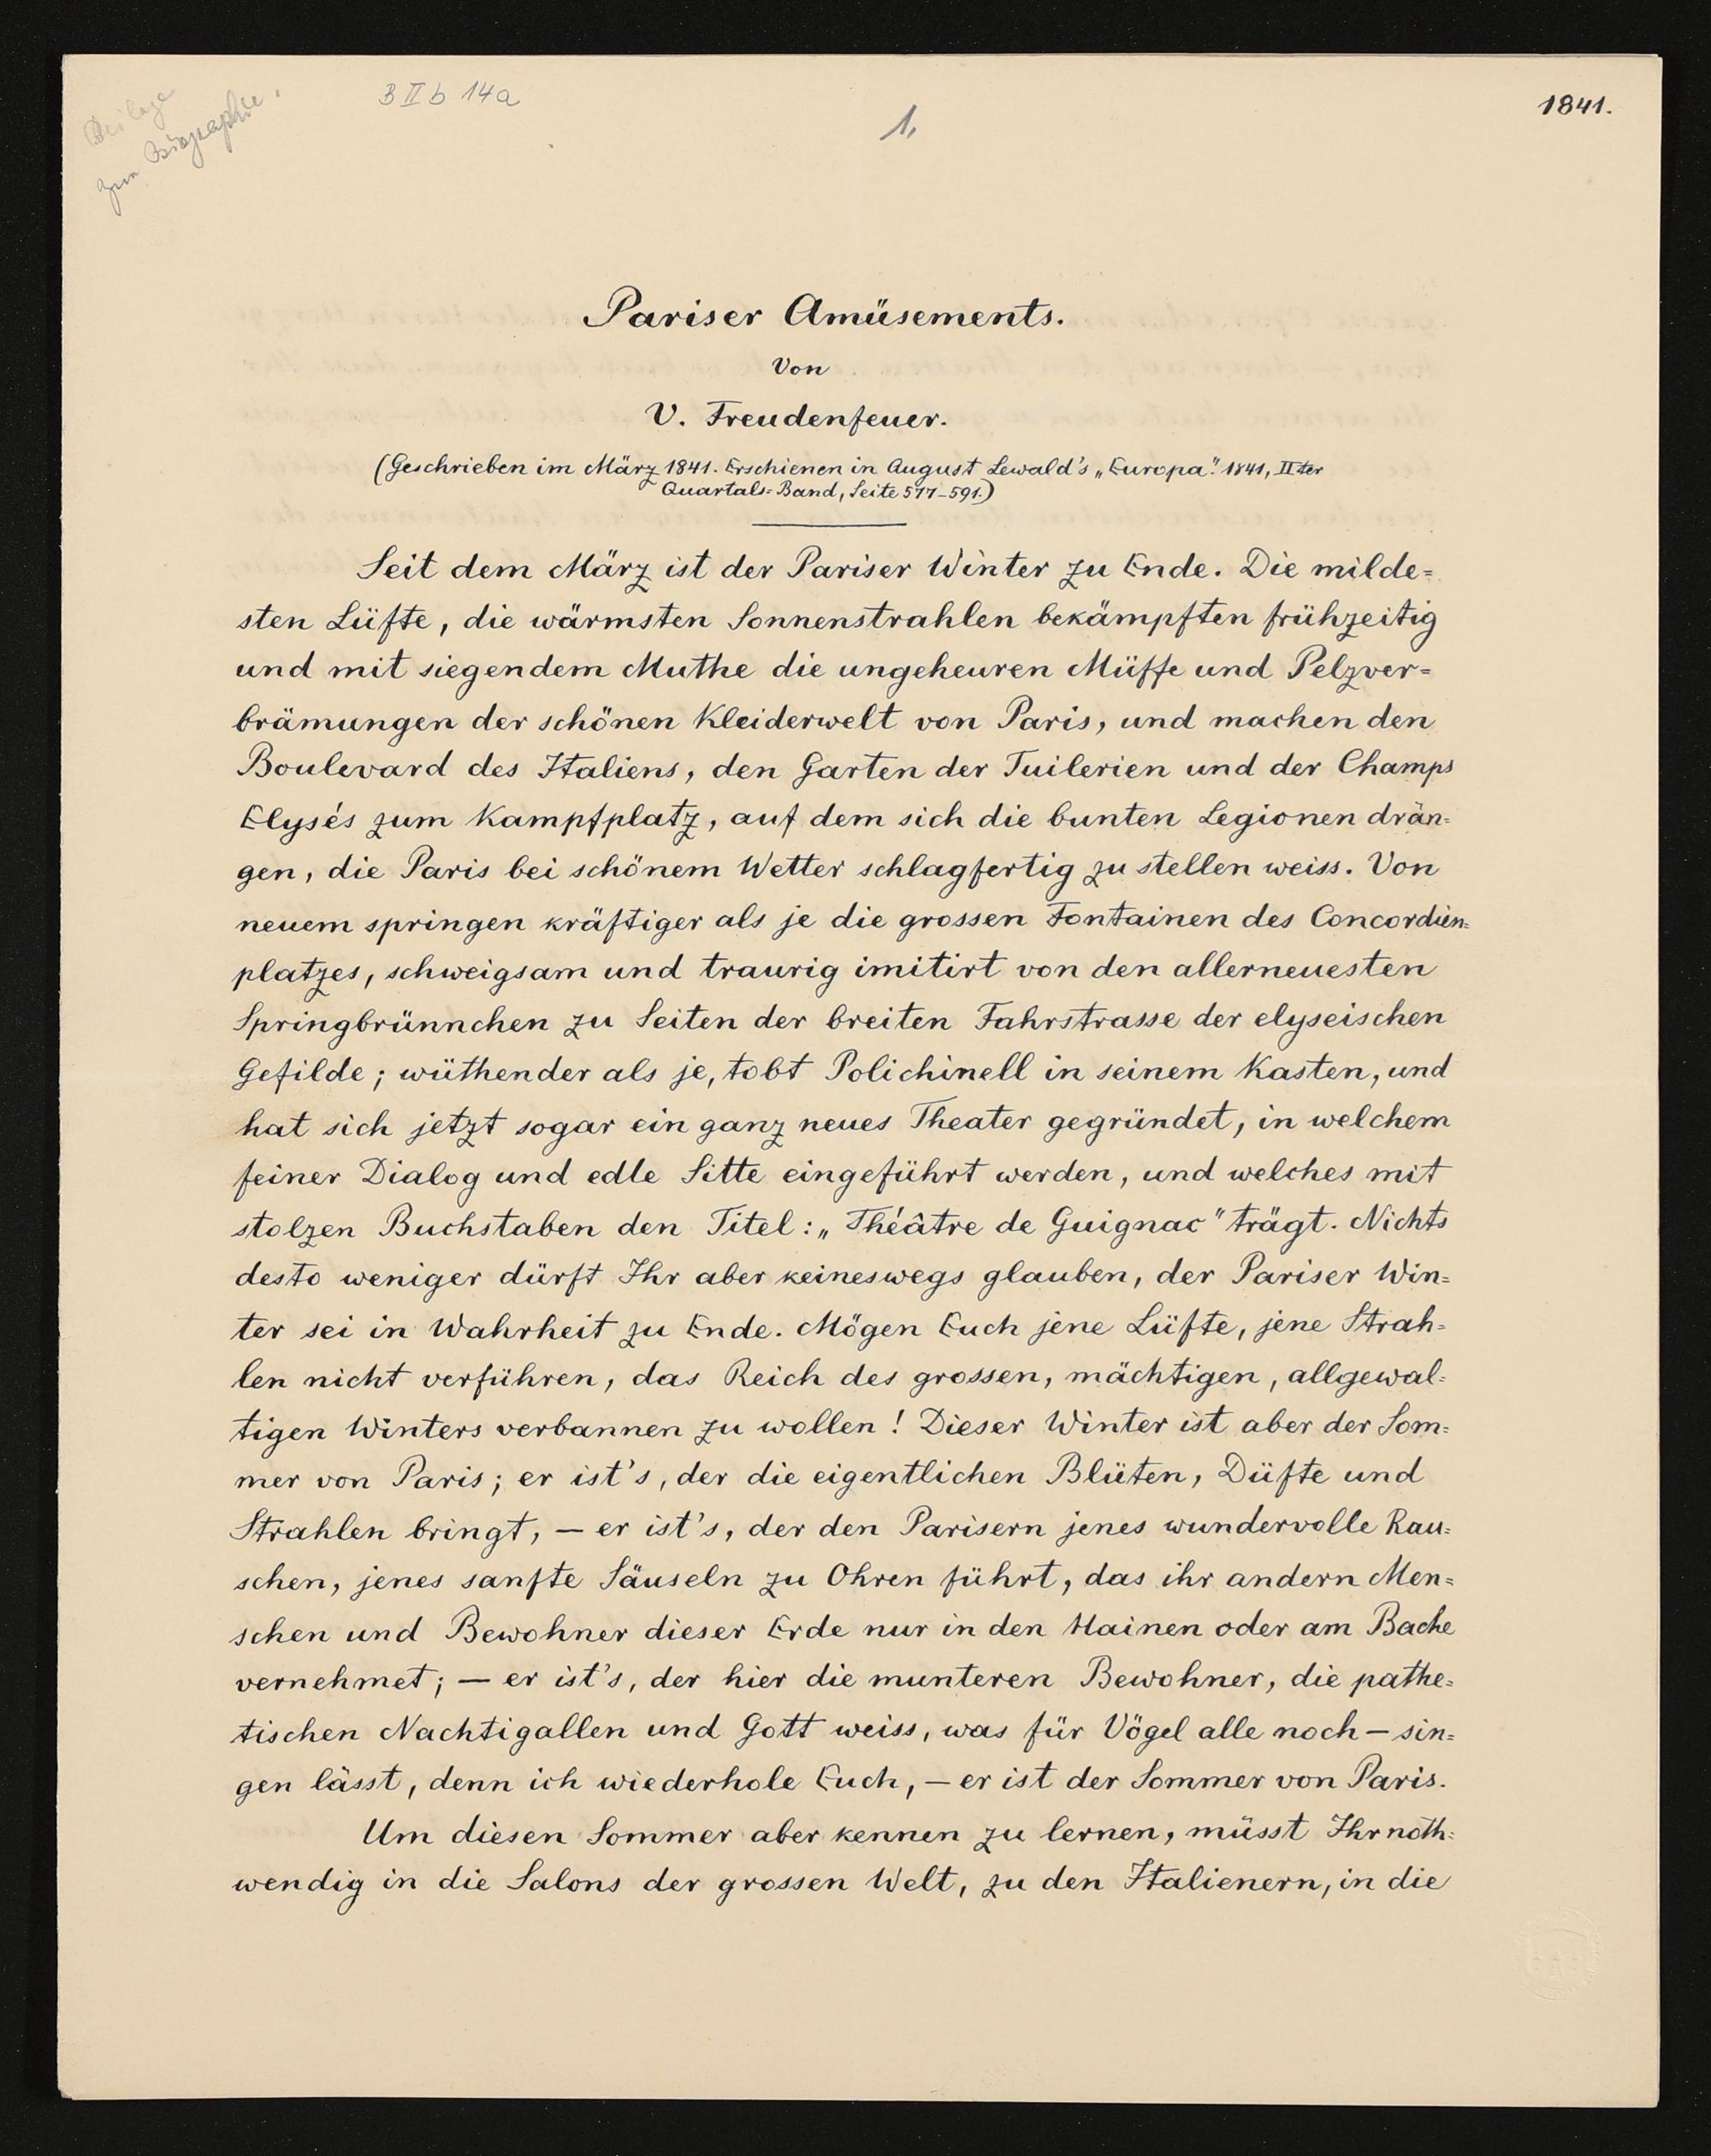 Beilage
zur Biographie.
B II b 14a
1.
1841.
Pariser Amüsements.
Von
V. Freudenfeuer.
(Geschrieben im März 1841. Erschienen in August Lewald's „Europa". 1841, IIter
Quartals=Band, Seite 577-591.)
Seit dem März ist der Pariser Winter zu Ende. Die milde=
sten Lüfte, die wärmsten Sonnenstrahlen bekämpften frühzeitig
und mit siegendem Muthe die ungeheuren Müffe und Pelzver=
brämungen der schönen Kleiderwelt von Paris, und machen den
Boulevard des Italiens, den Garten der Tuilerien und der Champs
Elysés zum Kampfplatz, auf dem sich die bunten Legionen drän=
gen, die Paris bei schönem Wetter schlagfertig zu stellen weiss. Von
neuem springen kräftiger als je die grossen Fontainen des Concordien=
platzes, schweigsam und traurig imitirt von den allerneuesten
Springbrünnchen zu Seiten der breiten Fahrstrasse der elyseischen
Gefilde; wüthender als je, tobt Polichinell in seinem Kasten, und
hat sich jetzt sogar ein ganz neues Theater gegründet, in welchem
feiner Dialog und edle Sitte eingeführt werden, und welches mit
stolzen Buchstaben den Titel: „Théâtre de Guignac" trägt. Nichts
desto weniger dürft Ihr aber keineswegs glauben, der Pariser Win=
ter sei in Wahrheit zu Ende. Mögen Euch jene Lüfte, jene Strah=
len nicht verführen, das Reich des grossen, mächtigen, allgewal=
tigen Winters verbannen zu wollen! Dieser Winter ist aber der Som=
mer von Paris; er ist's, der die eigentlichen Blüten, Düfte und
Strahlen bringt, — er ist's, der den Parisern jenes wundervolle Rau=
schen, jenes sanfte Säuseln zu Ohren führt, das ihr andern Men=
schen und Bewohner dieser Erde nur in den Hainen oder am Bache
vernehmet; — er ist's, der hier die munteren Bewohner, die pathe=
tischen Nachtigallen und Gott weiss, was für Vögel alle noch — sin=
gen lässt, denn ich wiederhole Euch, — er ist der Sommer von Paris.
Um diesen Sommer aber kennen zu lernen, müsst Ihr noth=
wendig in die Salons der grossen Welt, zu den Italienern, in die